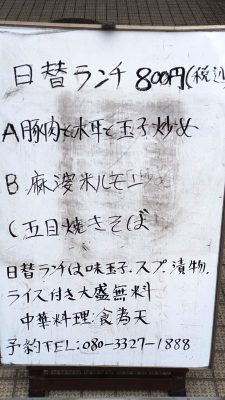 日替ランチ 800円(税込
A豚肉と味平と玉子炒め
B 麻婆米ルモン炒め
C五目焼きそば
日替ランチは味玉子.スープ.漬物.
ライス付き大盛無料
中華料理:食為天
予約TEL:080-3327-1888